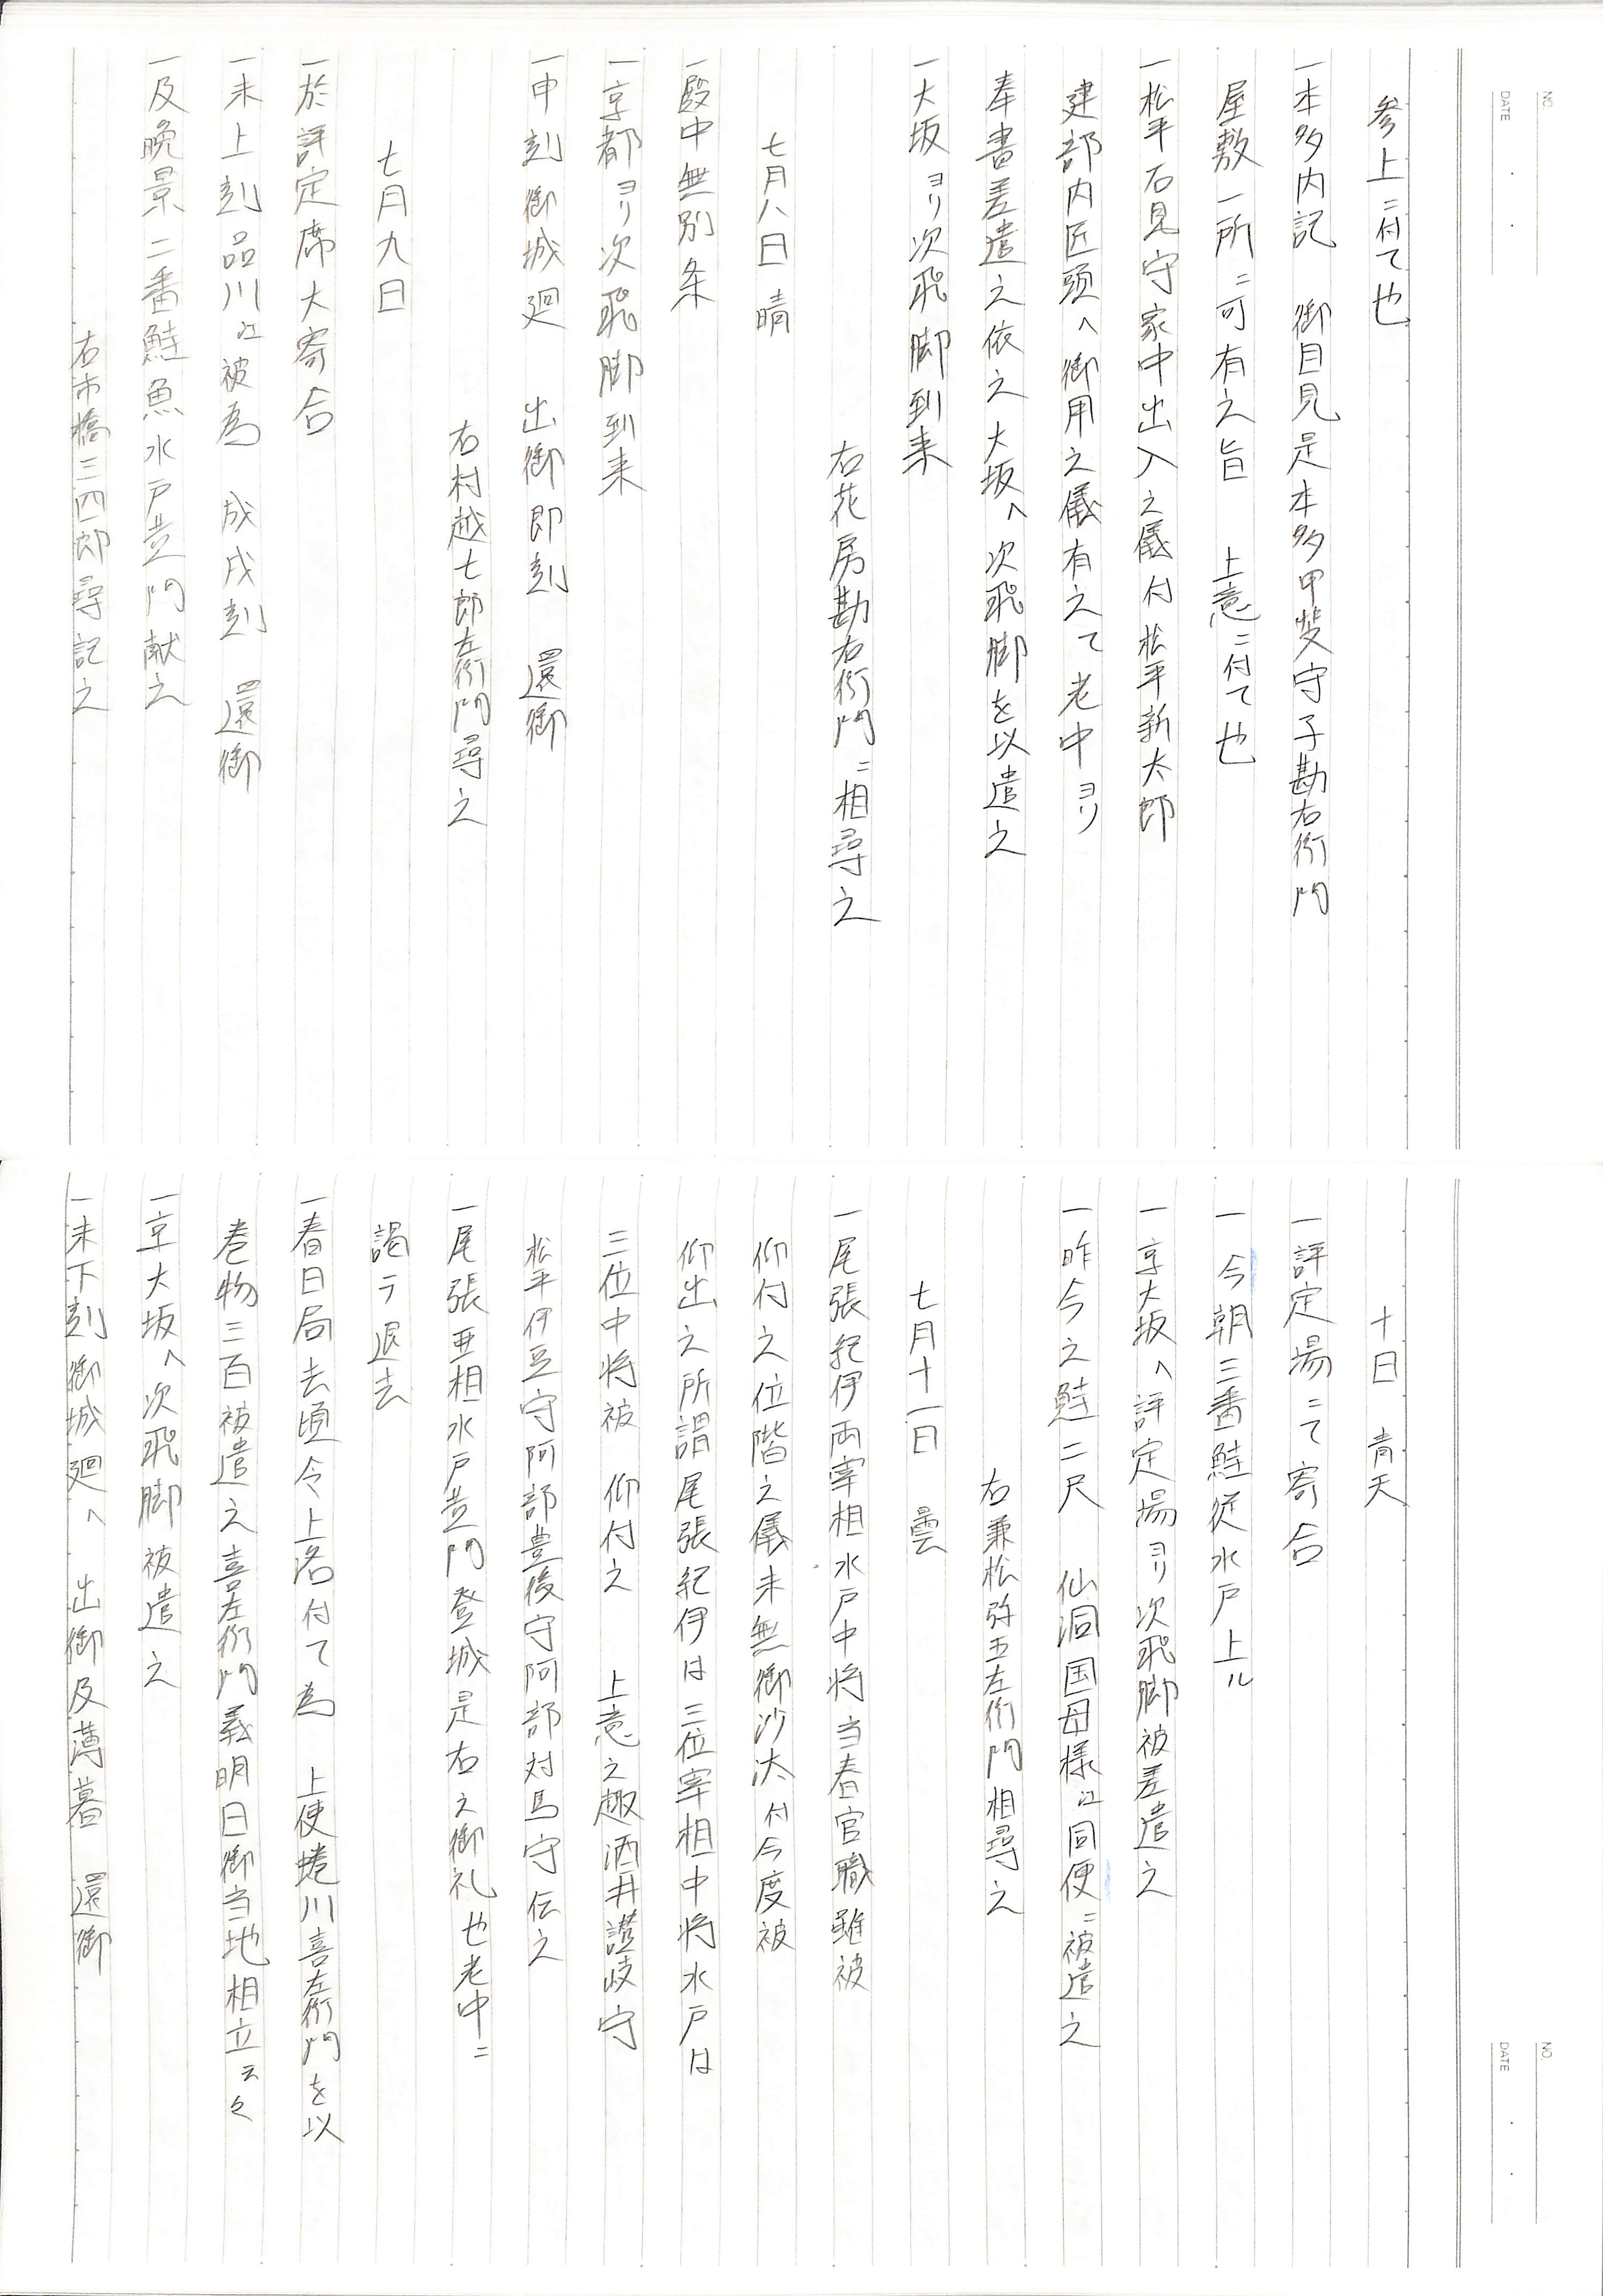 NO.
DATE
参上ニ付て也
一本多内記 御目見是本多甲斐守子勘右衛門
屋敷一所ニ可有之旨 上意ニ付て也
一松平石見守家中出入之儀付松平新太郎
建部内匠頭へ御用之儀有之て老中ヨリ
奉書差遣之依之大坂へ次飛脚を以遣之
一大坂ヨリ次飛脚到来
右花房勘右衛門ニ相尋之
七月八日 晴
一殿中無別条
一京都ヨリ次飛脚到来
一申刻御城廻 出御即刻 還御
右村越七郎左衛門尋之
七月九日
一於評定席大寄合
一未上刻品川江被為 成戌刻 還御
一及晩景二番鮭魚水戸黄門献之
右市橋三四郎尋記之
NO.
DATE
十日 青天
一評定場ニて寄合
一今朝三番鮭従水戸上ル
一京大坂へ評定場ヨリ次飛脚被差遣之
一昨今之鮭二尺 仙洞国母様江同便ニ被遣之
右兼松弥五左衛門相尋之
七月十一日 曇
一尾張紀伊両宰相水戸中将当春官職雖被
仰付之位階之儀未無御沙汰付今度被
仰出之所謂尾張紀伊は三位宰相中将水戸は
三位中将被 仰付之 上意之趣酒井讃岐守
松平伊豆守阿部豊後守阿部対馬守伝之
一尾張亜相水戸黄門登城是右之御礼也老中ニ
謁テ退去
一春日局去頃令上洛付て為 上使蜷川喜左衛門を以
巻物三百被遣之喜左衛門義明日御当地相立云々
一京大坂へ次飛脚被遣之
一未下刻御城廻へ 出御及薄暮 還御